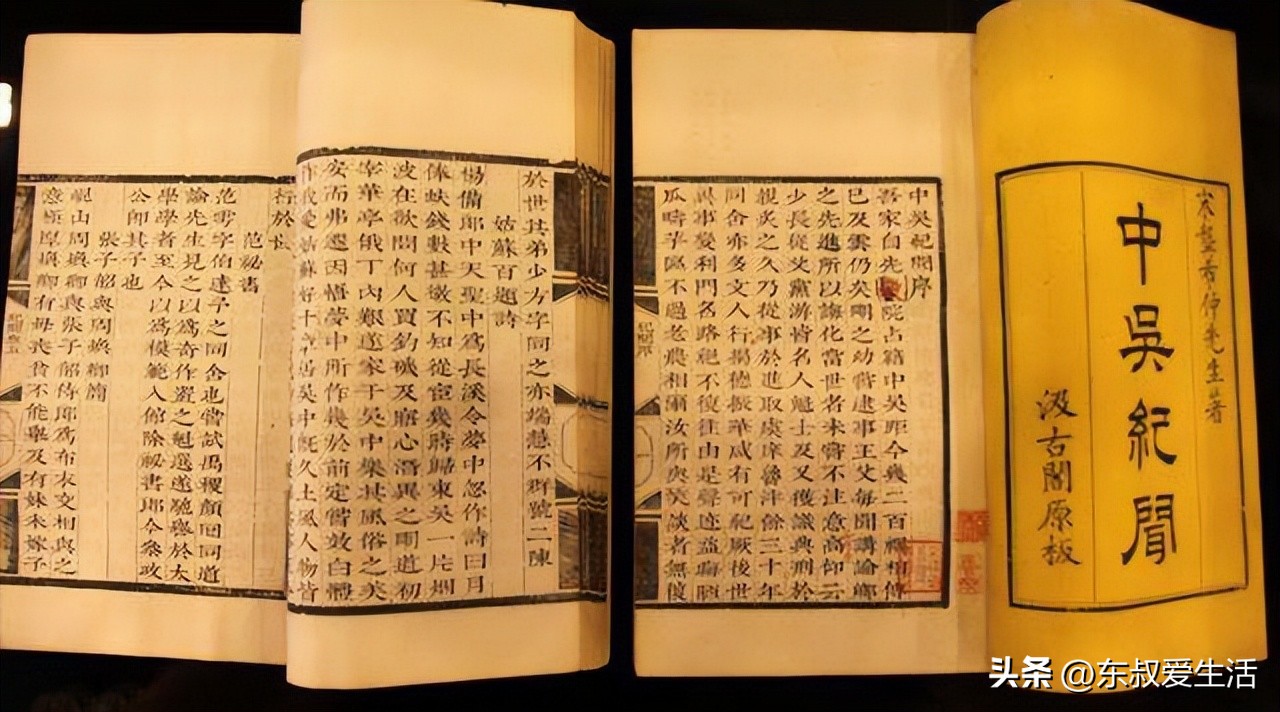 宋龔希仲先生著
中吳紀聞
汲古閣原板
中吳紀聞序
吾家自先院占籍中吳距今幾二百禩相傳
已及雲仍矣明之幼嘗逮事王父每聞講論鄉
之先進所以誨化當世者未嘗不注意高仰云
少長從父黨游皆名人魁士及又獲識典刑於
親炙之久乃從事於進取虞庠魯泮餘三十年
同舍亦多文人行揭德振華咸有可紀厥後世
異事變利門名路絕不復往由是聲迹益晦頤
瓜疇芋區不過老農相爾汝所與笑談者無復
於世其弟少方字同之亦端慤不群號二陳
姑蘇百題詩
楊備郎中天聖中為長溪令夢中忽作詩曰月
俸蚨錢數甚微不知從宦幾時歸東吳一片烟
波在欲問何人買釣磯及寤心潛異之明道初
宰華亭俄丁內艱遂家于吳中樂其風俗之美
安而弗遷因悟夢中所作幾於前定嘗效白體
作我愛姑蘇好十章居吳中既久土風人物皆
行於世
范祕書
范雩字伯達予之同舍也嘗試禹稷顏回同道
論先生見之以為奇作置之魁選遂馳譽於太
學學者至今以為模範入館除祕書郎今參政
公即其子也
張子韶與周煥卿簡
崐山周煥卿與張子韶侍郎為布衣交相與之
意極厚煥卿有母喪貧不能舉及有妹未嫁子
头条 @东叔爱生活